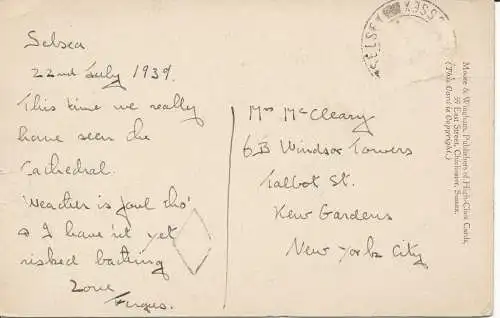 Selsea
22nd July 1939.
This time we really
have seen the
Cathedral.
Weather is foul tho'
& I haven't yet
risked bathing
Love
Fergus.
Mrs McCleary
6B Windsor Towers
Talbot St.
Kew Gardens
New York City
SELSEY
SUSSEX
Moore & Wingham, Publishers of High-Class Cards,
59 East Street, Chichester, Sussex.
(This Card is Copyright.)